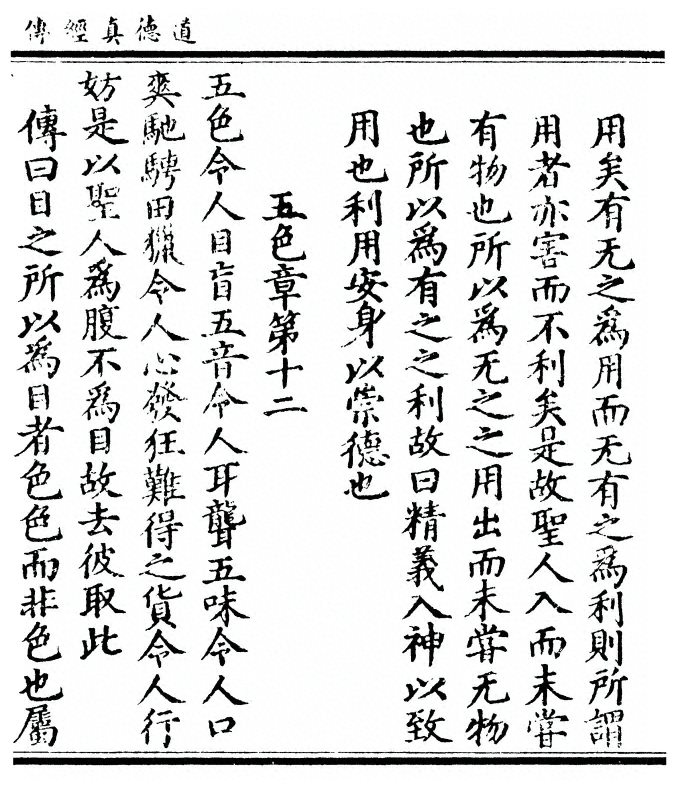 道德真經傳
用矣有无之為用而无有之為利則所謂
用者亦害而不利矣是故聖人入而未甞
有物也所以為无之之用出而未甞无物
也所以為有之之利故曰精義入神以致
用也利用安身以崇德也
五色章第十二
五色令人目盲五音令人耳聾五味令人口
爽馳騁田獵令人心發狂難得之貨令人行
妨是以聖人為腹不為目故去彼取此
傳曰目之所以為目者色色而非色也屬